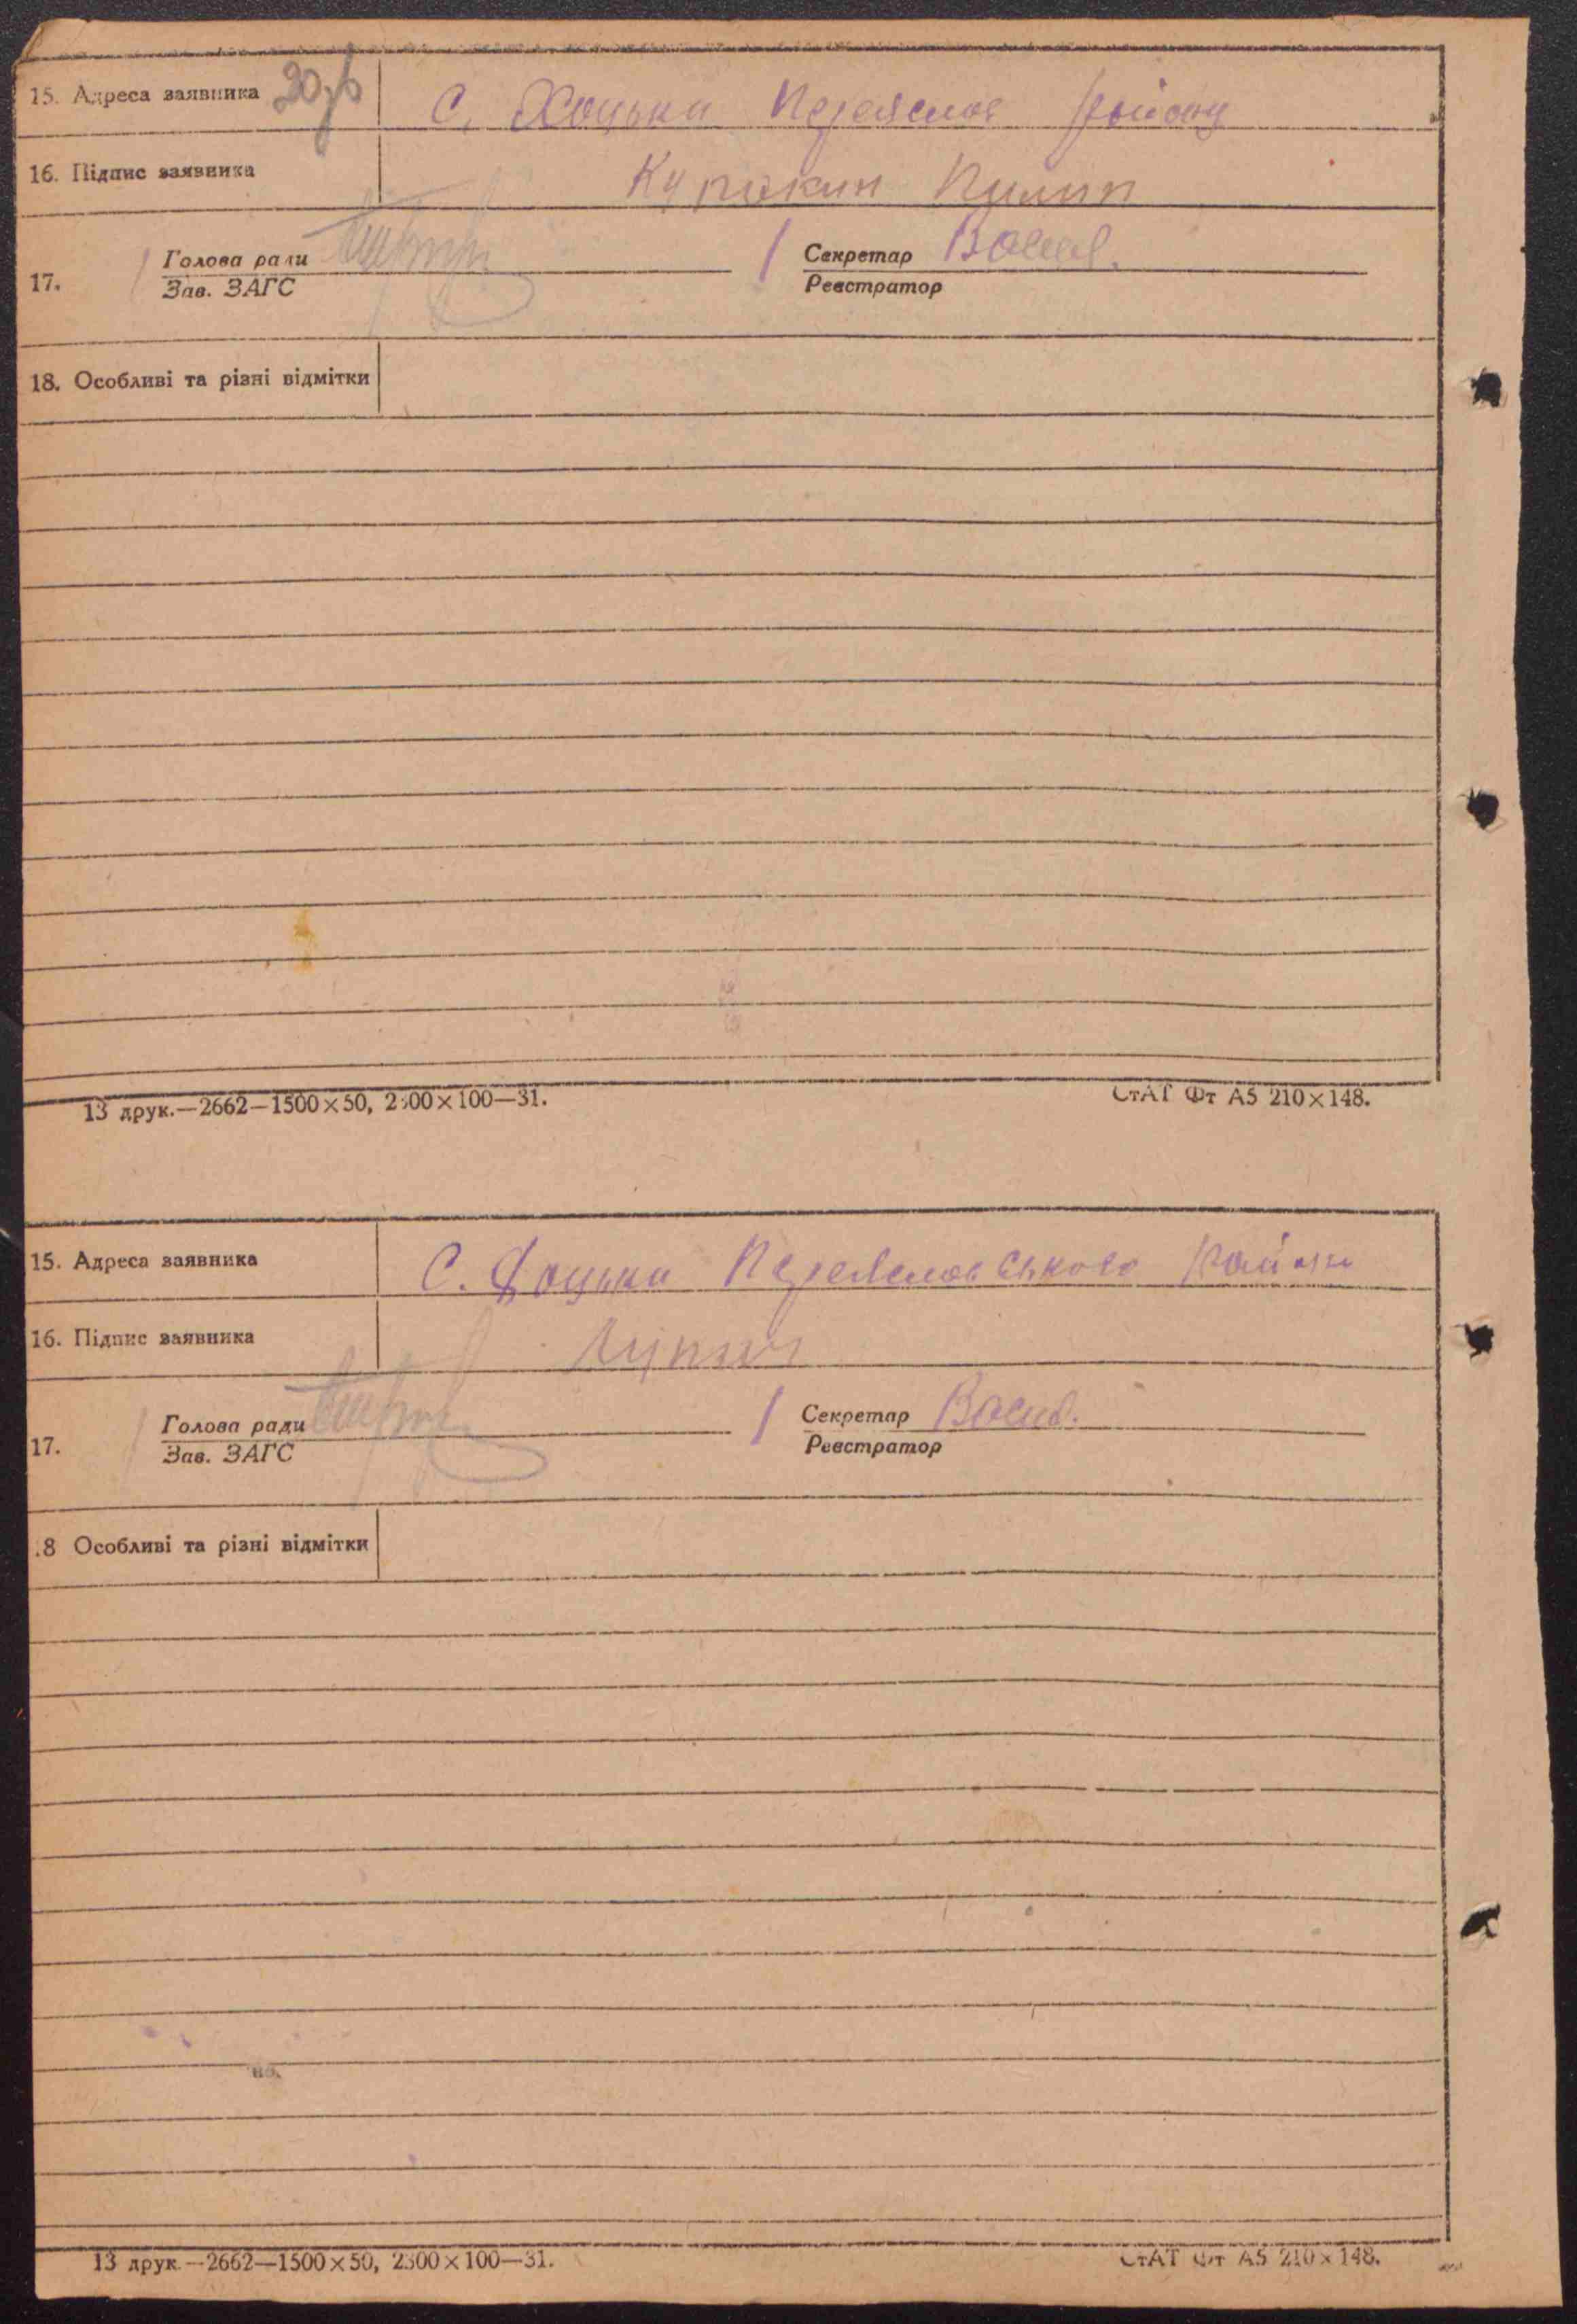 15. Адреса заявника 20зв С. Хоцьки Переяслов району
16. Підпис заявника Куракин Пилип
17. Голова ради Секретар Васил.
Зав. ЗАГС Реєстратор
18. Особливі та різні відмітки
13 друк.—2662—1500×50, 2300×100—31. СтАТ Фт А5 210×148.
15. Адреса заявника С. Хоцьки Переясловського Району
16. Підпис заявника
17. Голова ради Секретар Васил.
Зав. ЗАГС Реєстратор
18 Особливі та різні відмітки
13 друк.—2662—1500×50, 2300×100—31. СтАТ Фт А5 210×148.